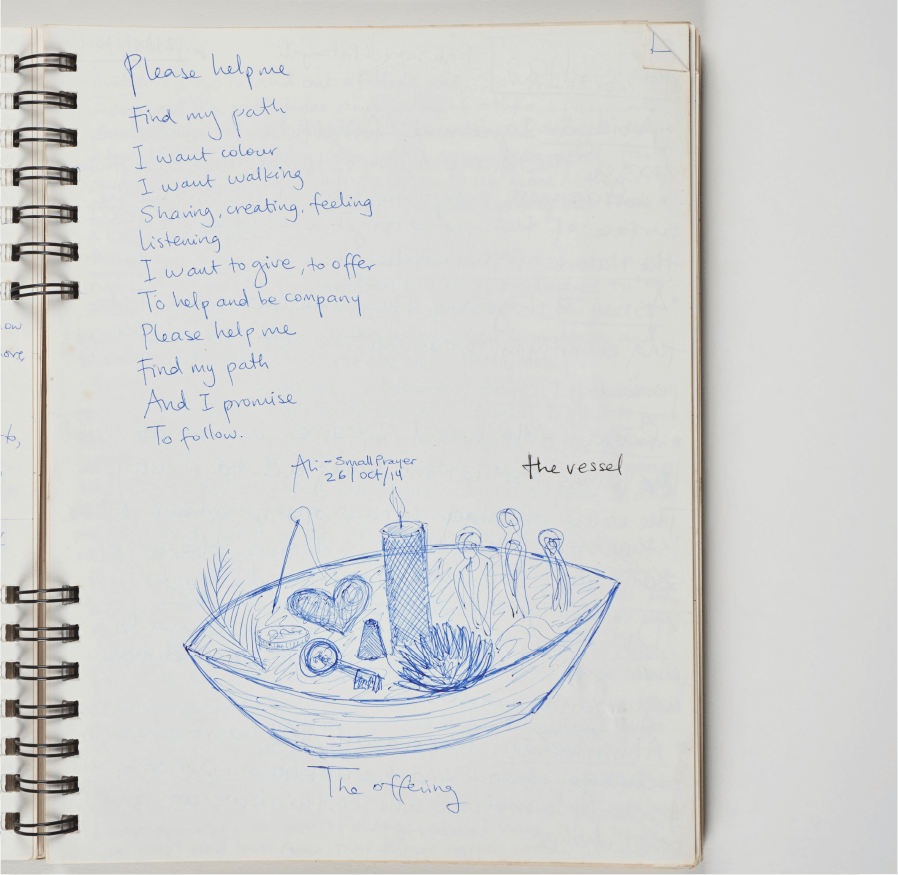 Please help me
Find my path
I want colour
I want walking
Sharing, creating, feeling
Listening
I want to give, to offer
To help and be company
Please help me
Find my path
And I promise
To follow.
Ali - Small Prayer
26/Oct/14
the vessel
The offering
ow
ore
to,